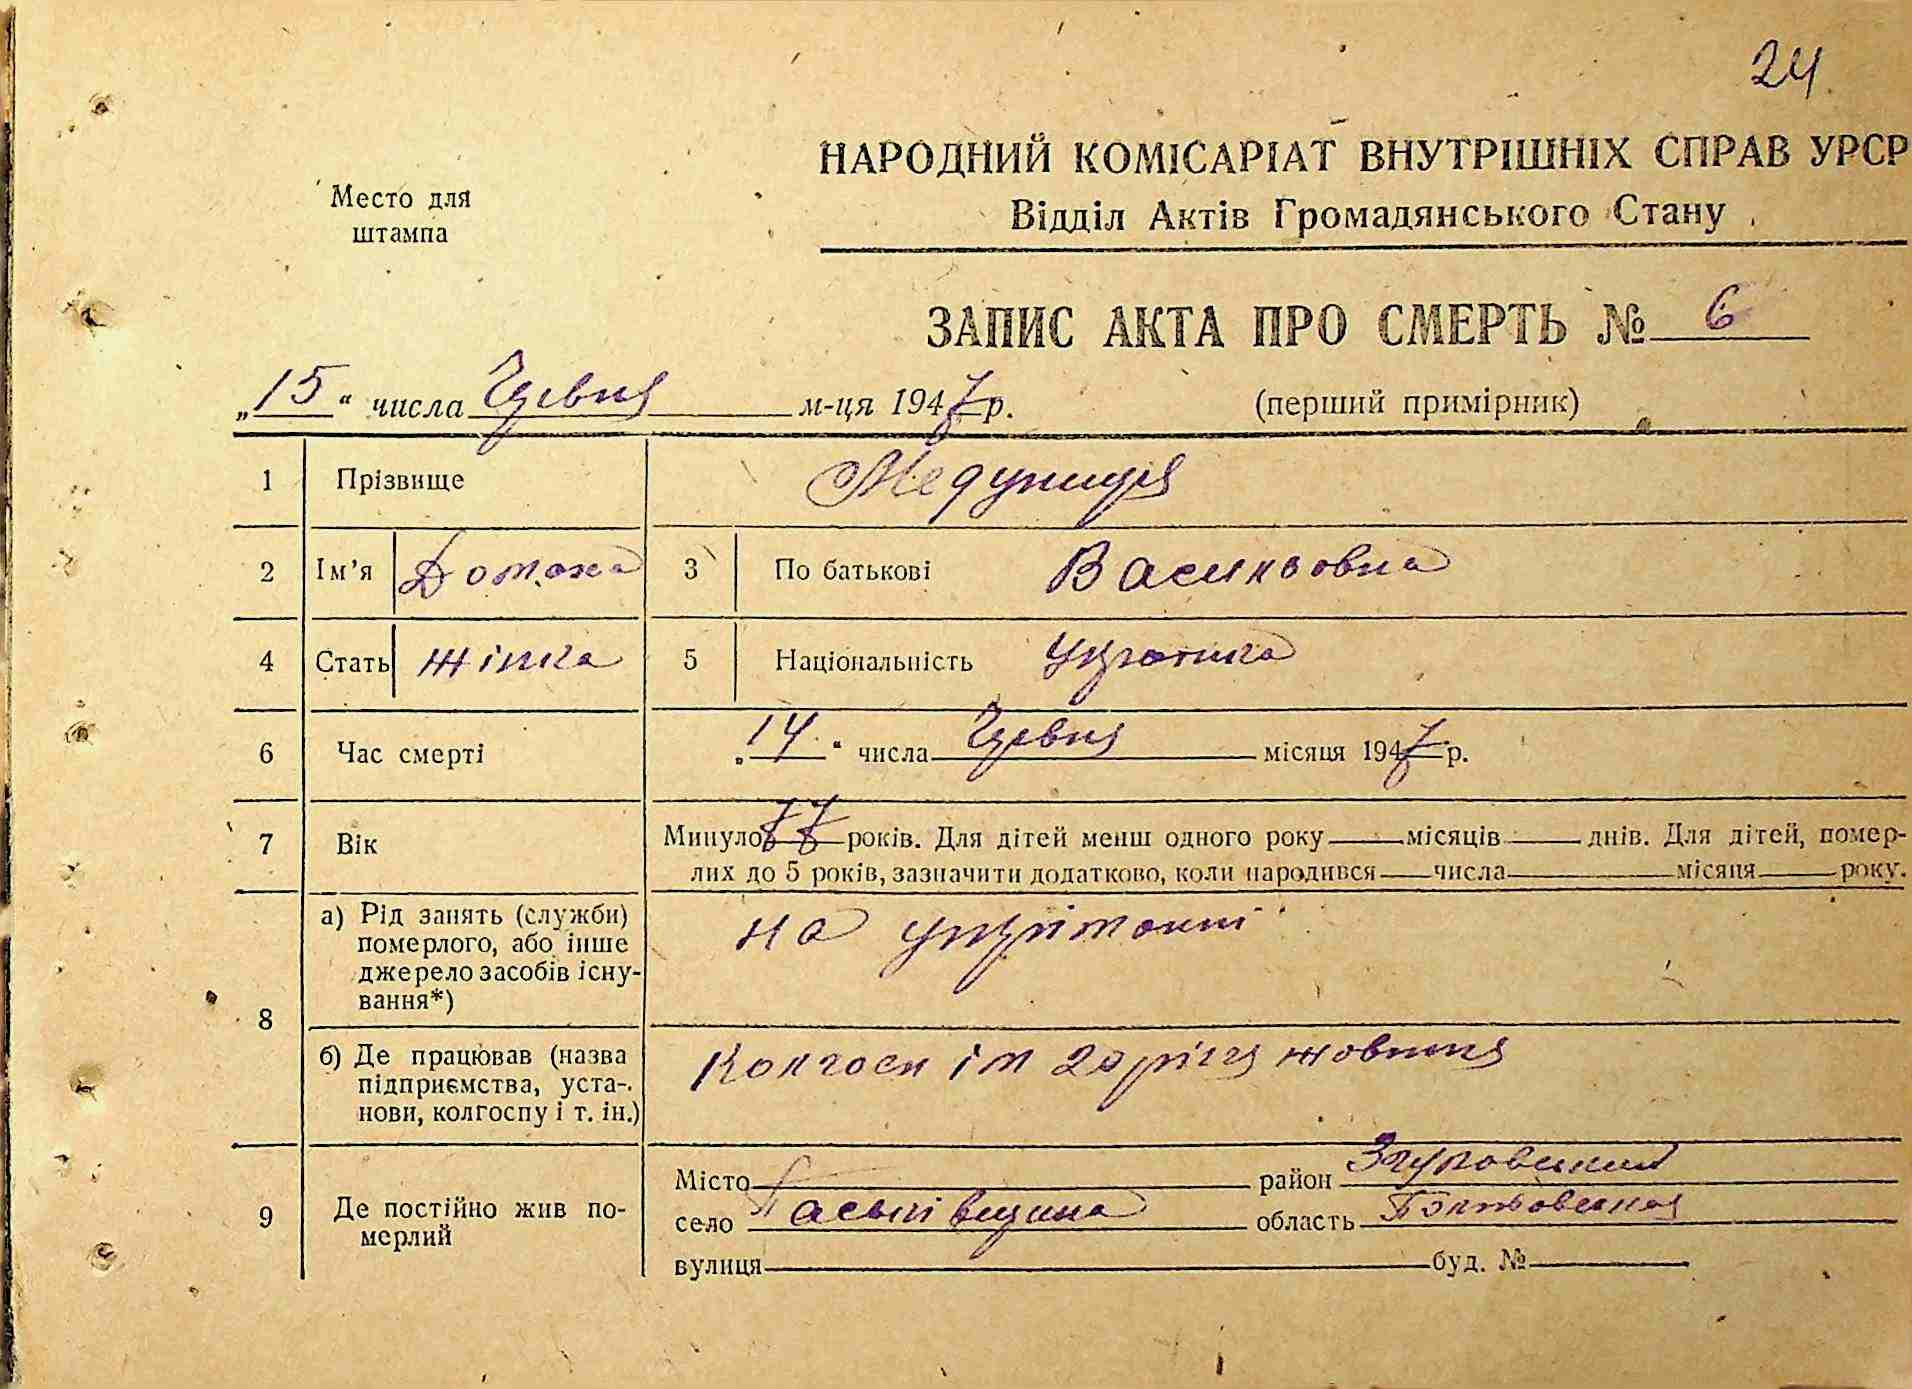 24
НАРОДНИЙ КОМІСАРІАТ ВНУТРІШНІХ СПРАВ УРСР
Место для штампа
Відділ Актів Громадянського Стану
ЗАПИС АКТА ПРО СМЕРТЬ № 6
„15“ числа Червня м-ця 1947 р. (перший примірник)
1 Прізвище Медуниця
2 Ім'я Домаха 3 По батькові Васильовна
4 Стать жінка 5 Національність Українка
6 Час смерті „14“ числа Червня місяця 1947 р.
7 Вік Минуло 77 років. Для дітей менш одного року місяців днів. Для дітей, помер-
лих до 5 років, зазначити додатково, коли народився числа місяця року.
8 а) Рід занять (служби) померлого, або інше джерело засобів існу-вання*) на утріманні
б) Де працював (назва підприємства, уста-нови, колгоспу і т. ін.) Колгосп ім 20 річчя жовтня
9 Де постійно жив по-мерлий
Місто район Згуровський
село Паськівщина область Полтавська
вулиця буд. №